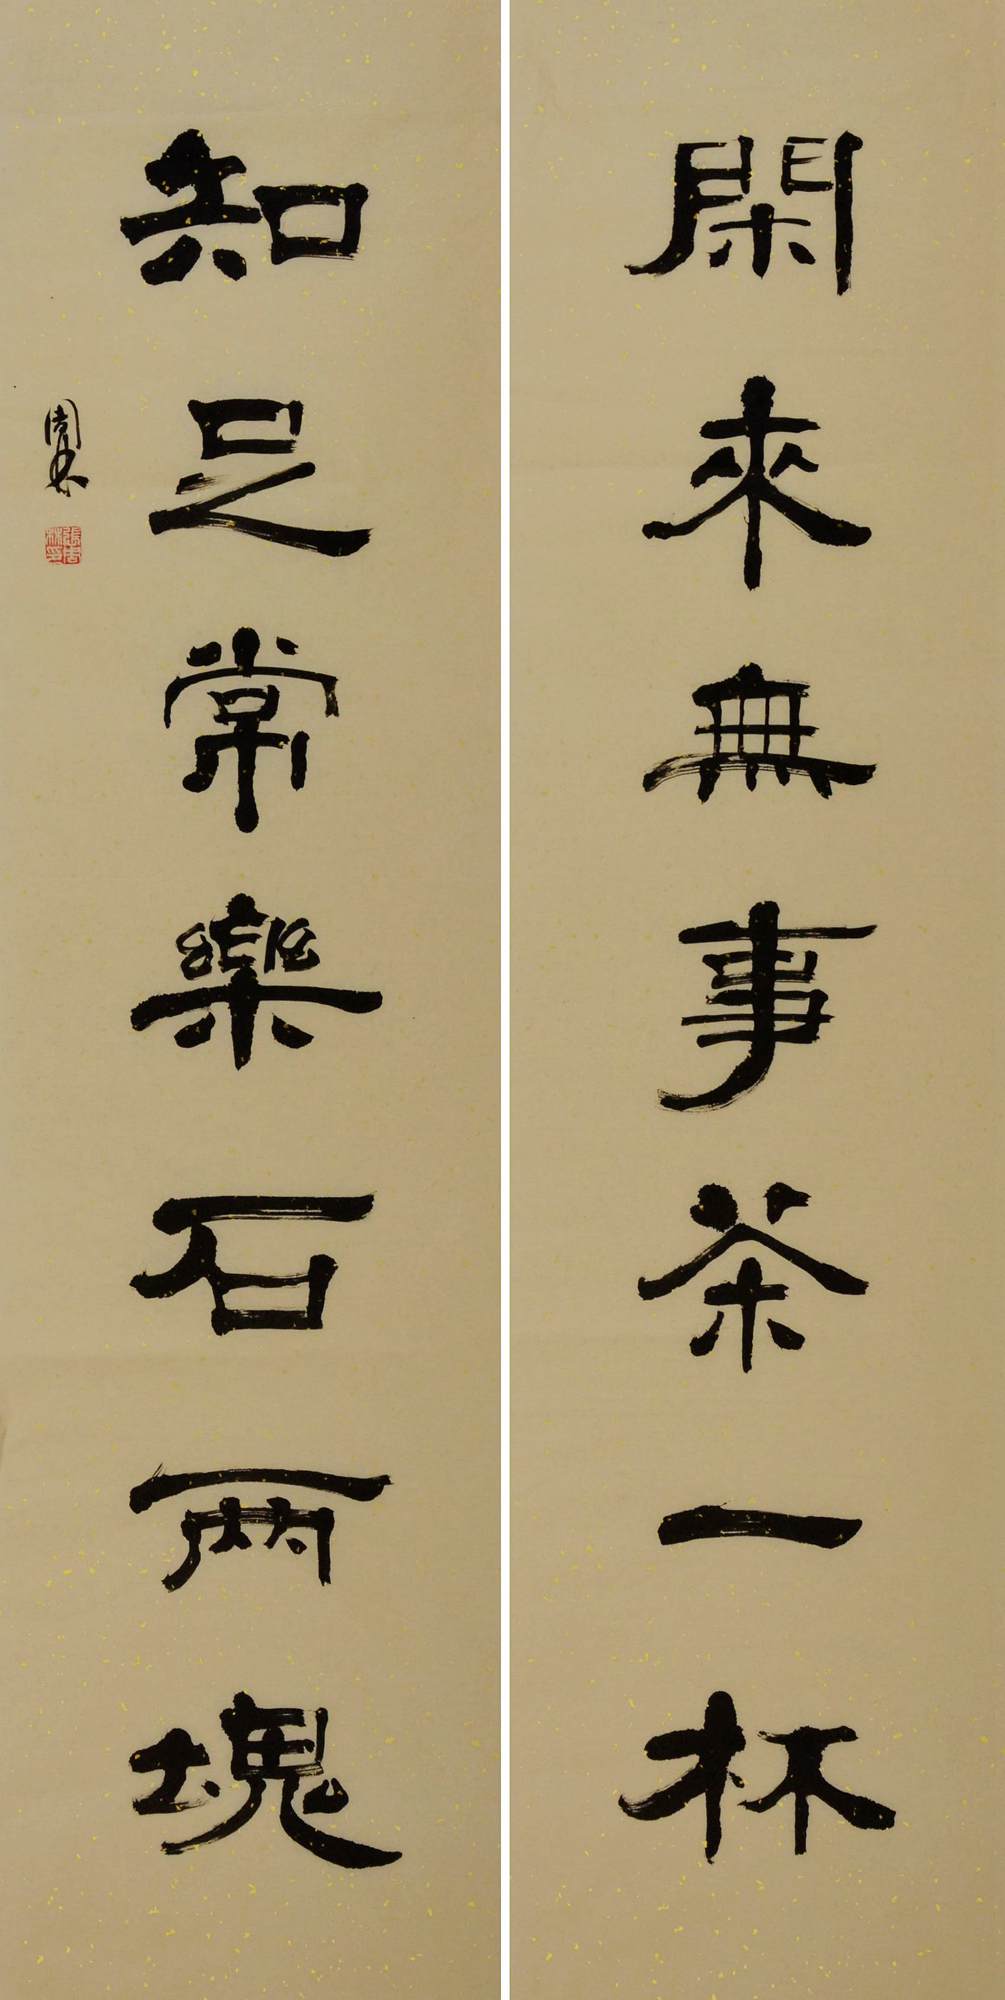 閑來無事茶一杯
知足常樂石兩塊
周林
張周林印